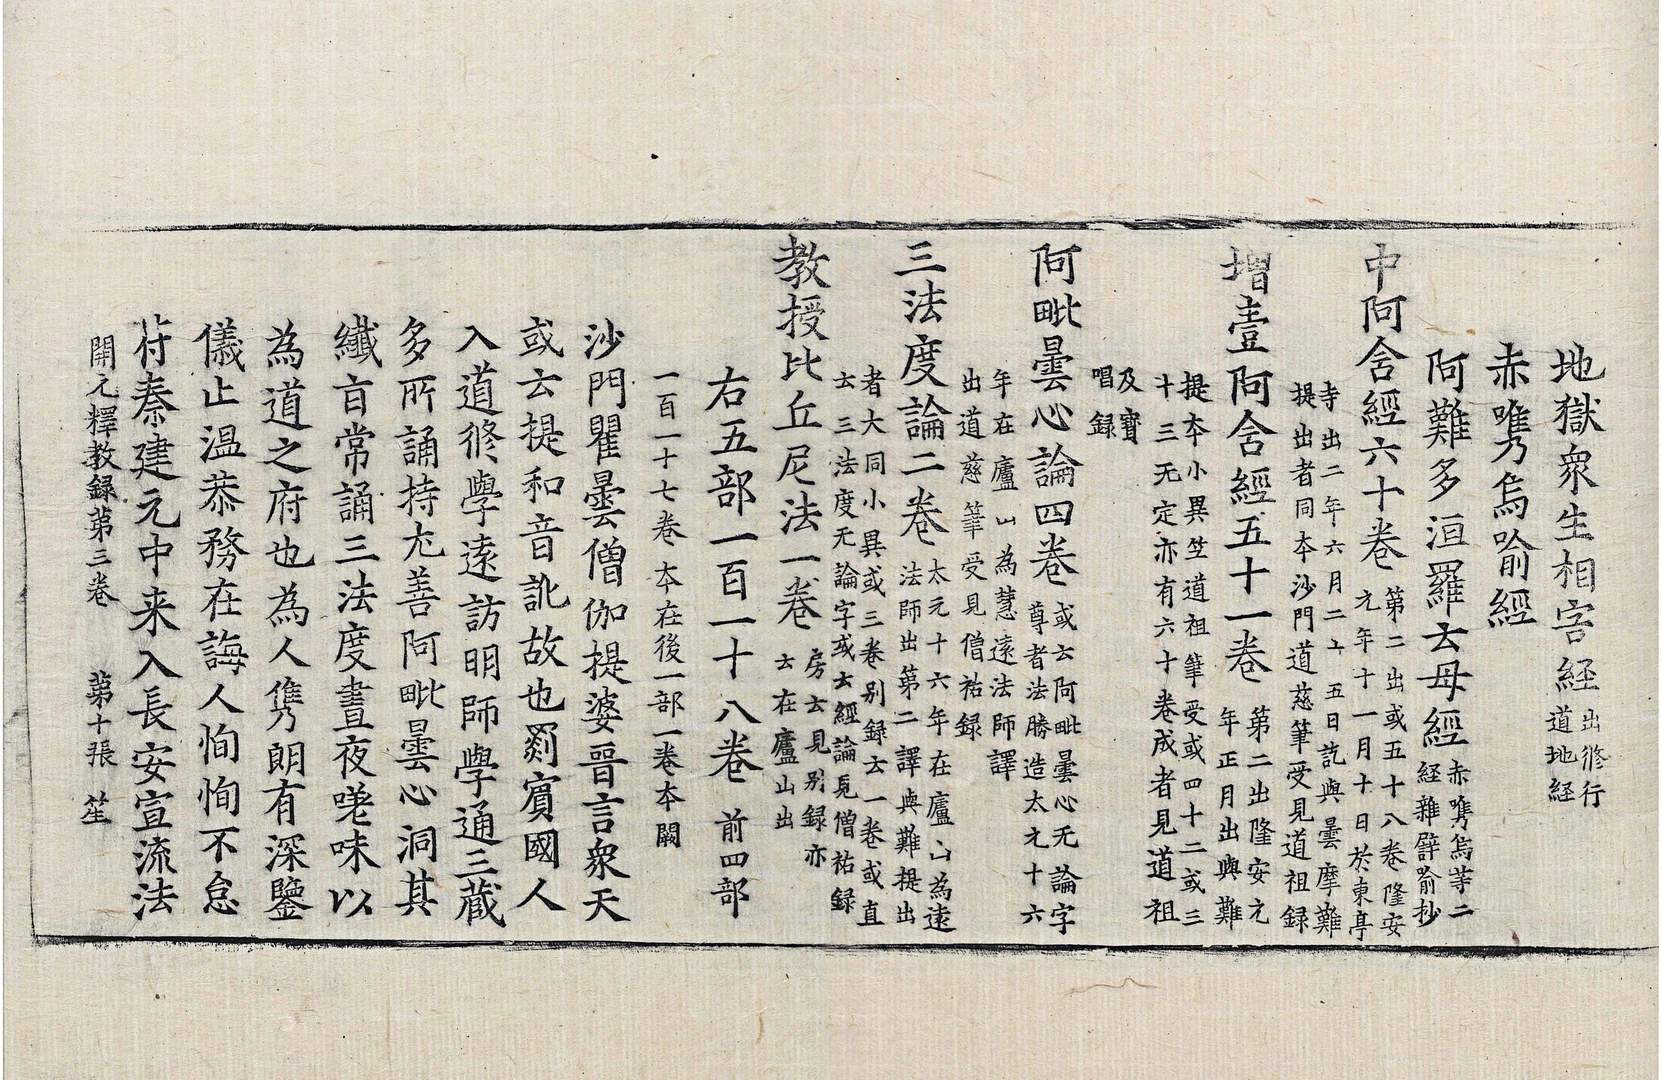 地獄衆生相害經出修行
道地經
赤嘴烏喻經
阿難多洹羅云母經赤嘴烏等二
經雜譬喻抄
中阿含經六十卷第二出或五十八卷隆安
元年十一月十日於東亭
寺出二年六月二十五日訖與曇摩難
提出者同本沙門道慈筆受見道祖録
增壹阿含經五十一卷第二出隆安元
年正月出與難
提本小異竺道祖筆受或四十二或三
十三无定亦有六十卷成者見道祖
及寶
唱録
阿毗曇心論四卷或云阿毗曇心无論字
尊者法勝造太元十六
年在廬山為慧遠法師譯
出道慈筆受見僧祐録
三法度論二卷太元十六年在廬山為遠
法師出第二譯與難提出
者大同小異或三卷别録云一卷或直
云三法度无論字或云經論見僧祐録
教授比丘尼法一卷房云見别録亦
云在廬山出
右五部一百一十八卷前四部
一百一十七卷本在後一部一卷本闕
沙門瞿曇僧伽提婆晉言衆天
或云提和音訛故也罽賓國人
入道修學遠訪明師學通三藏
多所誦持尤善阿毗曇心洞其
纖旨常誦三法度晝夜嗟味以
為道之府也為人儁朗有深鑒
儀止温恭務在誨人恂恂不怠
苻秦建元中来入長安宣流法
開元釋教録第三卷 第十張 笙